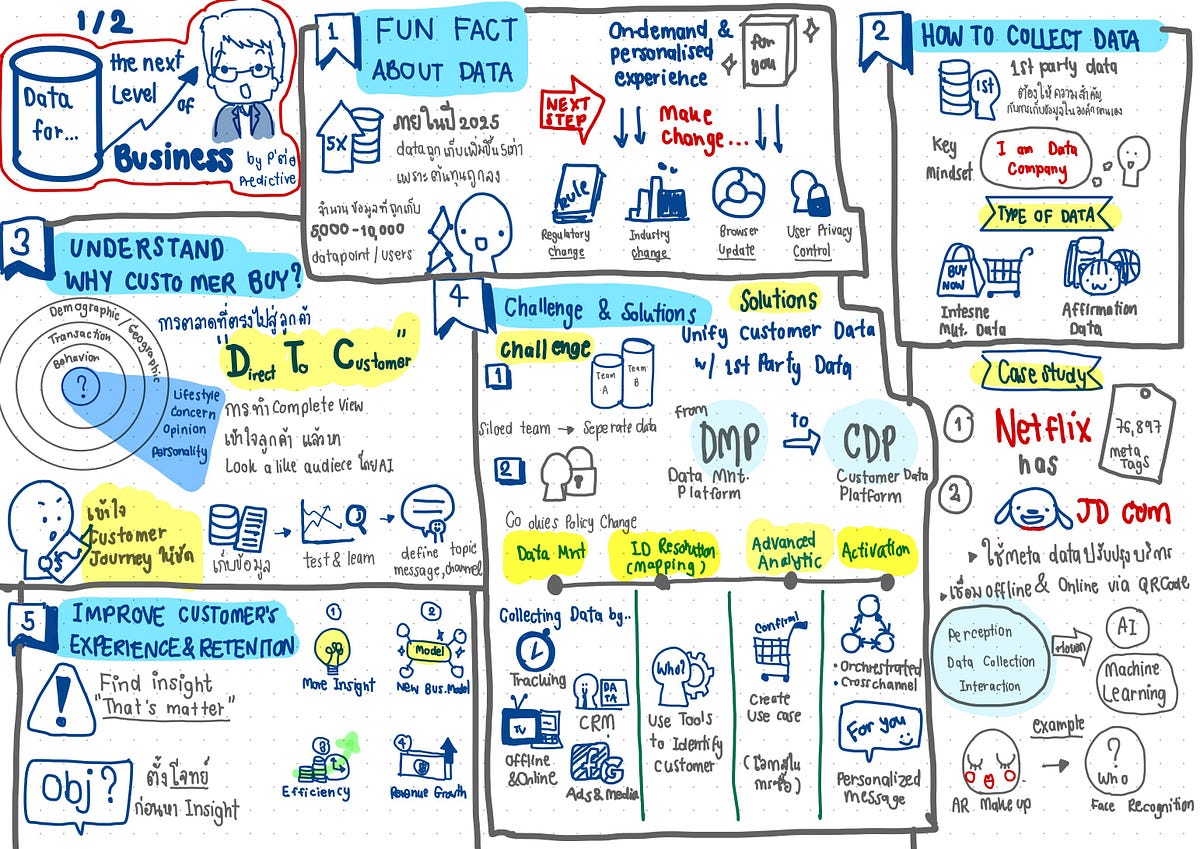 1/2
Data
for...
the next
Level
of
Business
by P'ต่อ
Predictive
1
FUN FACT
ABOUT DATA
5X
ภายในปี 2025
data ถูกเก็บเพิ่มขึ้น 5 เท่า
เพราะต้นทุนถูกลง
จำนวนข้อมูลที่ถูกเก็บ
5,000-10,000
datapoint / users
On-demand &
personalised
experience
for
you
NEXT
STEP
Make
change...
RULE
Regulatory
Change
Industry
change
Browser
Update
User Privacy
Control
2
HOW TO COLLECT DATA
1st
1st party data
ต้องให้ความสำคัญ
กับการเก็บข้อมูลในองค์กรตนเอง
Key
Mindset
I am Data
Company
TYPE OF DATA
BUY
NOW
Intesne
Mut. Data
Affirmation
Data
3
UNDERSTAND
WHY CUSTOMER BUY?
Demographic / Geographic
Transaction
Behavion
?
Lifestyle
Concern
Opinion
Personality
การตลาดที่ตรงไปสู่ลูกค้า
"Direct To Customer"
การทำ Complete View
เข้าใจลูกค้า แล้วหา
Look a like audiece โดย AI
เข้าใจ
Customer
Journey ให้ชัด
เก็บข้อมูล
test & learn
define topic
message, channel
4
Challenge & Solutions
Challenge
1
Team
A
Team
B
Siloed team → Seperate data
2
Cookies Policy Change
Solutions
Unify customer Data
w/ 1st Party Data
from
DMP
Data Mnt.
Platform
to
CDP
Customer Data
Platform
Data Mnt
ID Resolution
(mapping)
Advanced
Analytic
Activation
Collecting Data by..
Tracking
DA
TA
CRM
TV
Offline
& Online
Ads & Media
Who?
Use Tools
to Identify
Customer
Confirm!
Create
Use case
• Orchestrated
• Crosschannel
For you
Personalized
Message
Case study
1
Netflix
has
76,897
meta
Tags
2
JD com
ใช้ meta data ปรับปรุงบริการ
เชื่อม offline & Online via QRCode
Perception
Data Collection
Interaction
AI
Machine
Learning
example
AR Make up
?
Who
Face Recognition
5
IMPROVE CUSTOMER'S
EXPERIENCE & RETENTION
!
Find insight
"That's matter"
Obj?
ตั้งโจทย์
ก่อนหา Insight
1
More Insight
2
Model
New Bus. Model
3
Efficiency
4
Revenue Growth